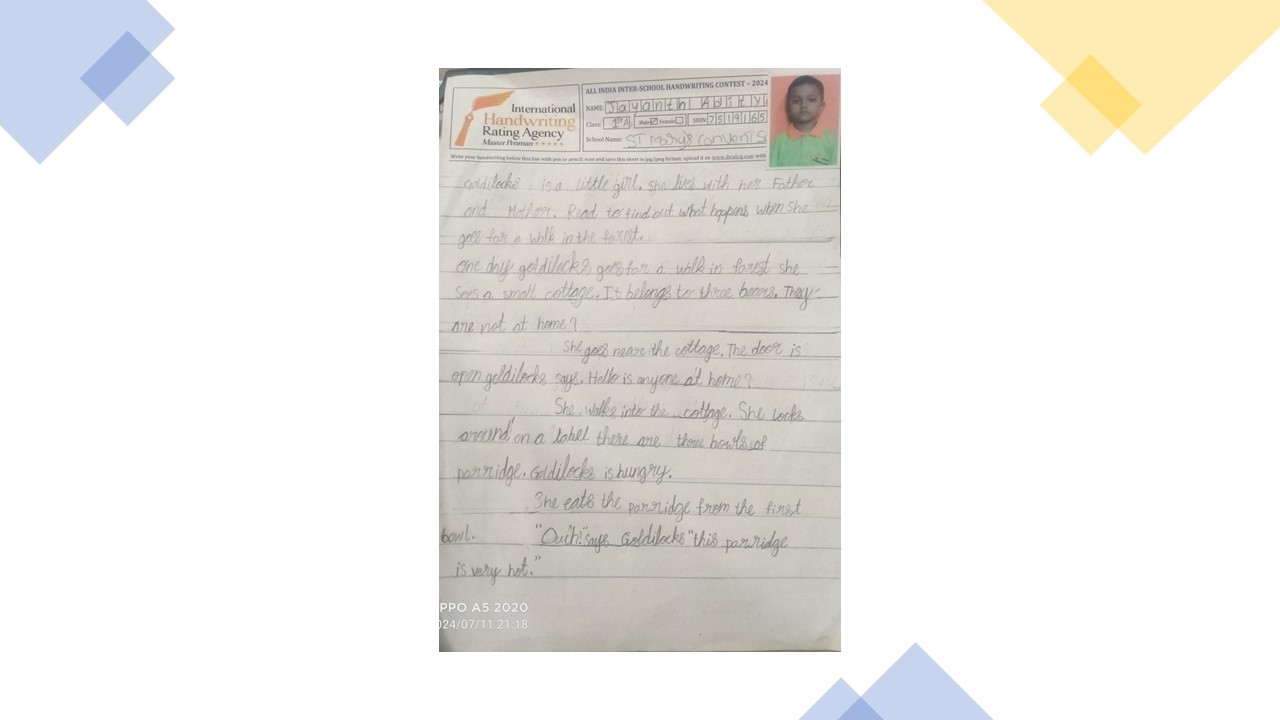 International
Handwriting
Rating Agency
Master Penman
ALL INDIA INTER-SCHOOL HANDWRITING CONTEST – 2024
NAME: Jayanth Adity
Class: 1st A Male Female SRHN 7519165
School Name: ST Mary's Convent S
Write your handwriting below this line with pen or pencil; scan and save this sheet in jpg/jpeg format; upload it on www.ihrating.com with
Goldilocks is a little girl. She lives with her Father
and Mother. Read to find out what happens when she
goes for a walk in the forest.
One day goldilocks goes for a walk in forest she
sees a small cottage. It belongs to three bears. They
are not at home?
She goes near the cottage. The door is
open goldilocks says. Hello is anyone at home?
She walks into the cottage. She looks
around on a tabel there are three bowls of
parridge. Goldilocks is hungry.
She eats the parridge from the first
bowl. "Ouch!" says Goldilocks "this parridge
is very hot."
PPO A5 2020
024/07/11 21:18